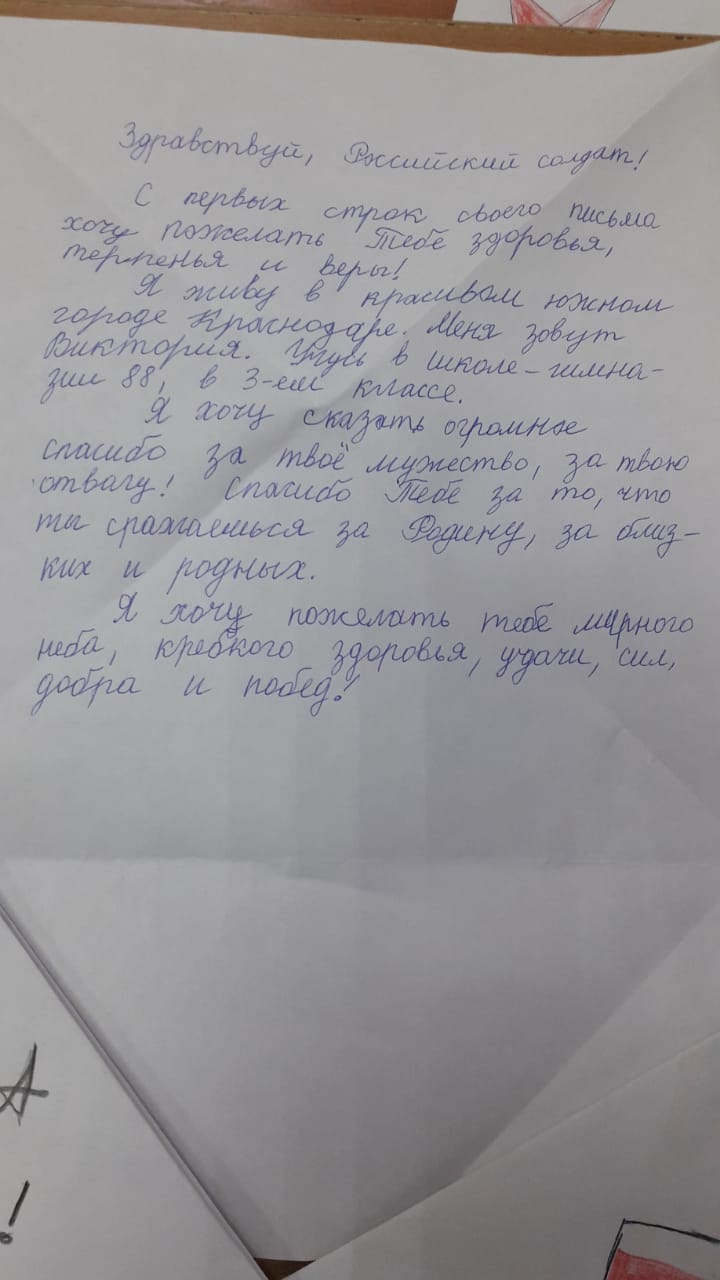 Здравствуй, Российский солдат!
С первых строк своего письма
хочу пожелать Тебе здоровья,
терпенья и веры!
Я живу в красивом южном
городе Краснодаре. Меня зовут
Виктория. Учусь в школе-гимна-
зии 88, в 3-ем классе.
Я хочу сказать огромное
спасибо за твоё мужество, за твою
отвагу! Спасибо Тебе за то, что
ты сражаешься за Родину, за близ-
ких и родных.
Я хочу пожелать тебе мирного
неба, крепкого здоровья, удачи, сил,
добра и побед!
А
!